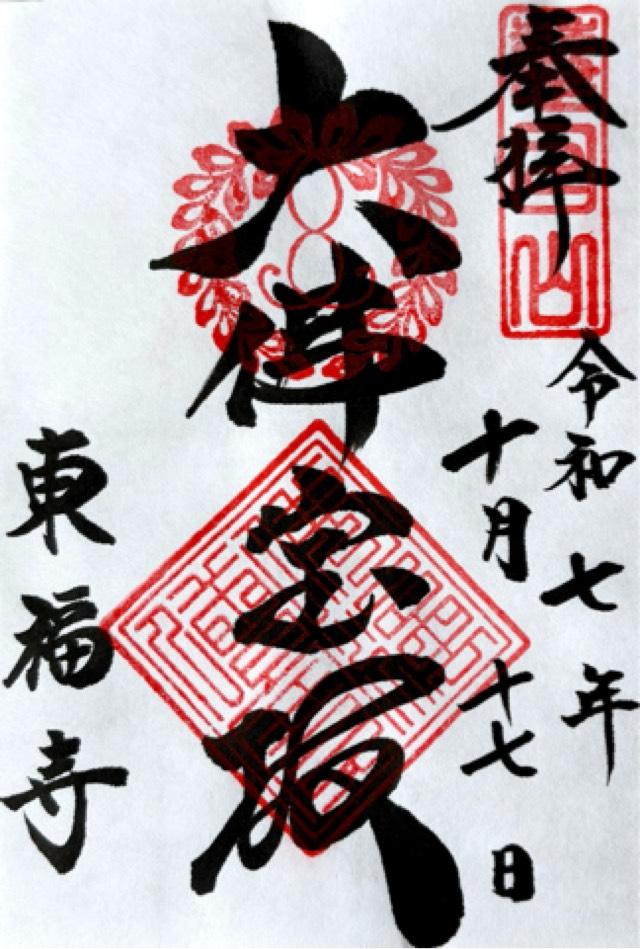 奉拝
令和七年
十月十七日
大佛宝殿
東福寺